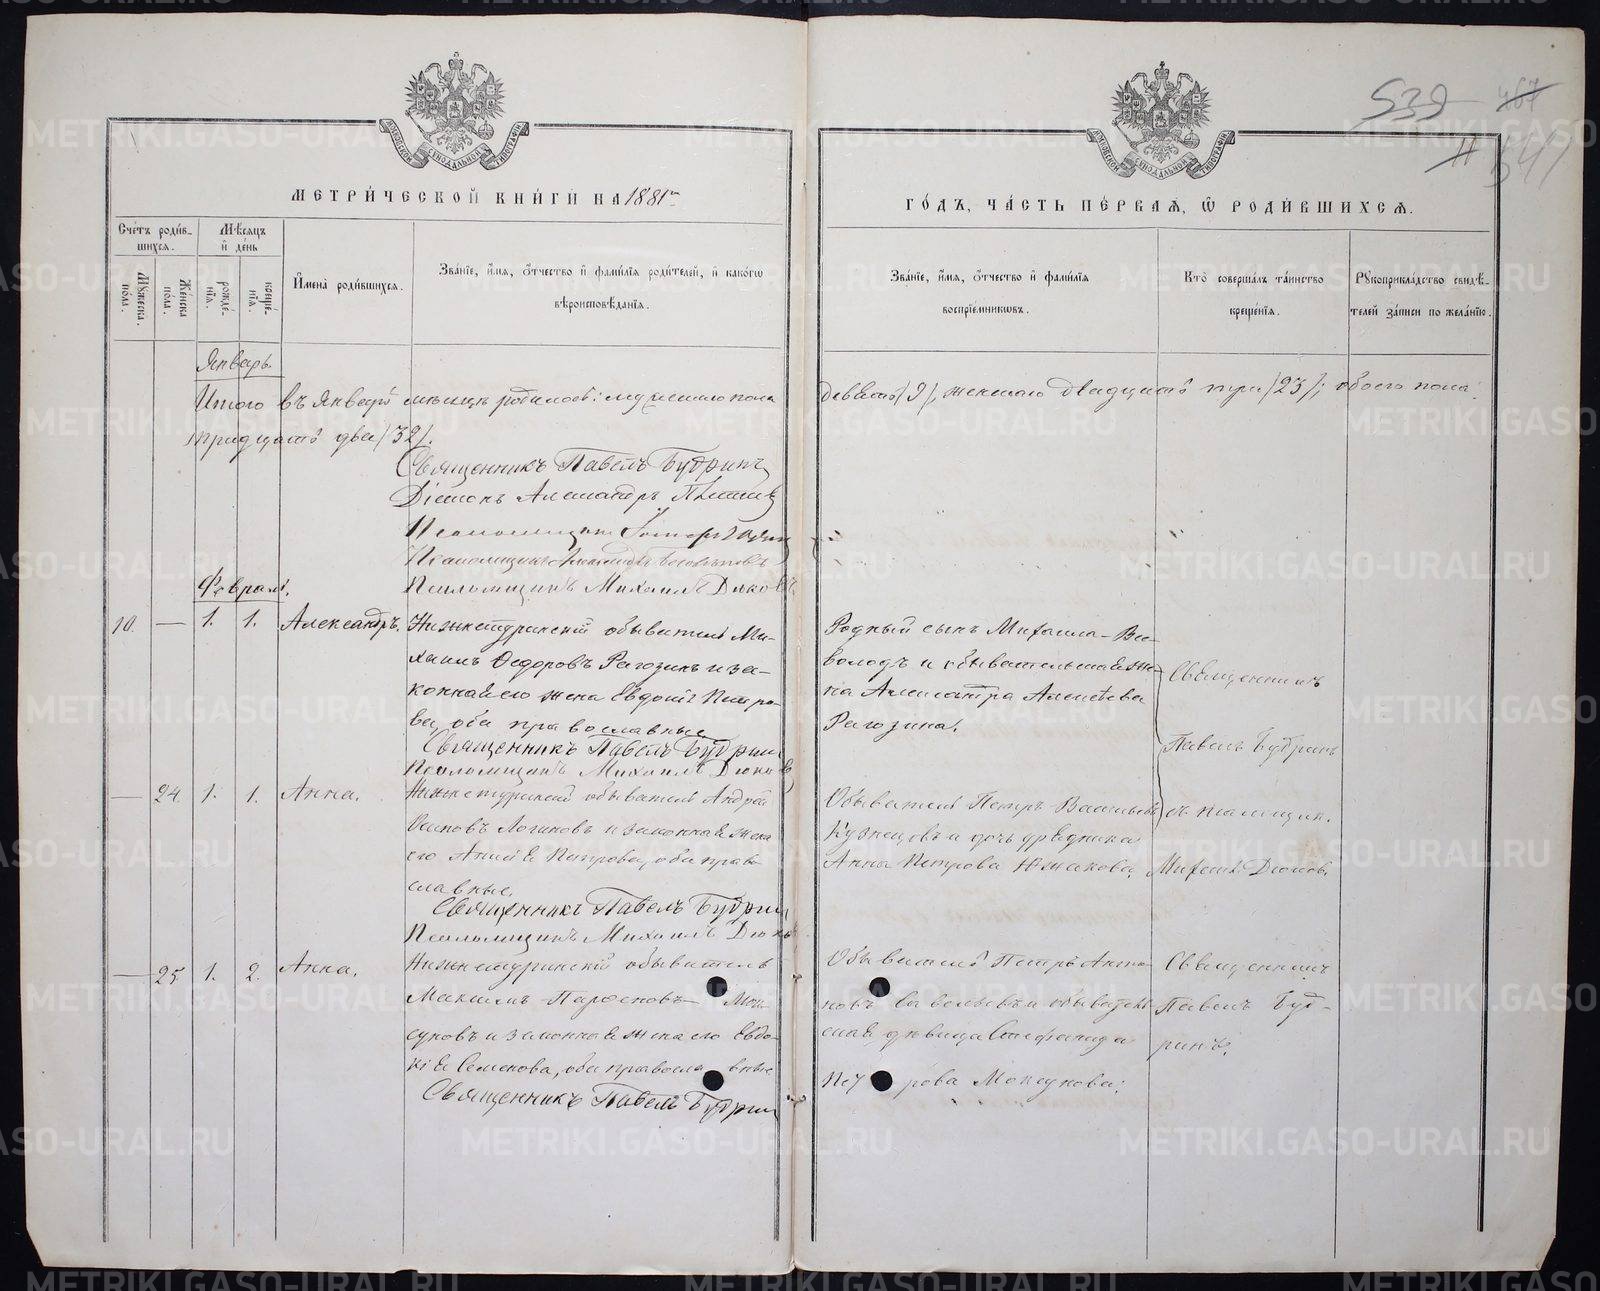 539 467
541
МОСКОВСКОЙ СѴНОДАЛЬНОЙ ТИПОГРАФІИ
МОСКОВСКОЙ СѴНОДАЛЬНОЙ ТИПОГРАФІИ
МЕТРИ́ЧЕСКОЙ КНИ́ГИ НА 1881й
ГО́ДЪ, ЧА́СТЬ ПЕ́РВАЯ, Ѡ РОДИ́ВШИХСЯ.
Сче́тъ роди́в-
шихся.
Мꙋ́жеска по́ла.
Же́нска по́ла.
Мѣ́сяцъ
и҆ де́нь
рожде́-
нїя.
креще́-
нїя.
И҆мена̀ роди́вшихся.
Зва́нїе, и҆́мя, ѻ҆́тчество и҆ фами́лїя роди́телей, и҆ како́гѡ
вѣроисповѣ́данїя.
Зва́нїе, и҆́мя, ѻ҆́тчество и҆ фами́лїя
воспрїе́мникѡвъ.
Кто̀ соверша́лъ та́инство
креще́нїя.
Рꙋкоприкла́дство свидѣ́-
телей за́писи по жела́нїю.
Январь.
Итого въ Январѣ мѣсяцѣ родилось: мужескаго пола
девять /9/, женскаго двадцать три /23/; обоего пола
тридцать два /32/.
Священникъ Павелъ Будринъ
Діаконъ Александръ
Псаломщикъ
Псаломщикъ
Февраль.
Псаломщикъ Михаилъ Дюковъ
10. — 1. 1. Александръ.
Нижнетуринскій обыватель Ми-
хаилъ Ѳедоровъ Рагозинъ и за-
конная его жена Евдокія Петро-
ва, оба православные
Священникъ Павелъ Будринъ
Псаломщикъ Михаилъ Дюковъ
Родный сынъ Михаила Все-
володъ и обывательская же-
на Александра Алексѣева
Рагозина.
Священникъ
Павелъ Будринъ
— 24. 1. 1. Анна.
Нижнетуринскій обыватель Андрей
Осиповъ Логиновъ и законная жена
его Петрова, оба право-
славные.
Священникъ Павелъ Будринъ
Псаломщикъ Михаилъ Дюковъ
Обыватель Петръ Васильевъ
Кузнецовъ и дочь урядника
Анна Петрова Южакова.
псаломщик.
Михаилъ Дюковъ.
— 25. 1. 2. Анна.
Нижнетуринскій обыватель
Максимъ Мок-
суновъ и законная жена его Евдо-
кія Семенова, оба православные
Священникъ Павелъ Будринъ
Обыватель Петръ Анто-
новъ и обыватель-
ская дѣвица Стефанида
Моксунова.
Священникъ
Павелъ Буд-
ринъ.
METRIKI.GASO-URAL.RU